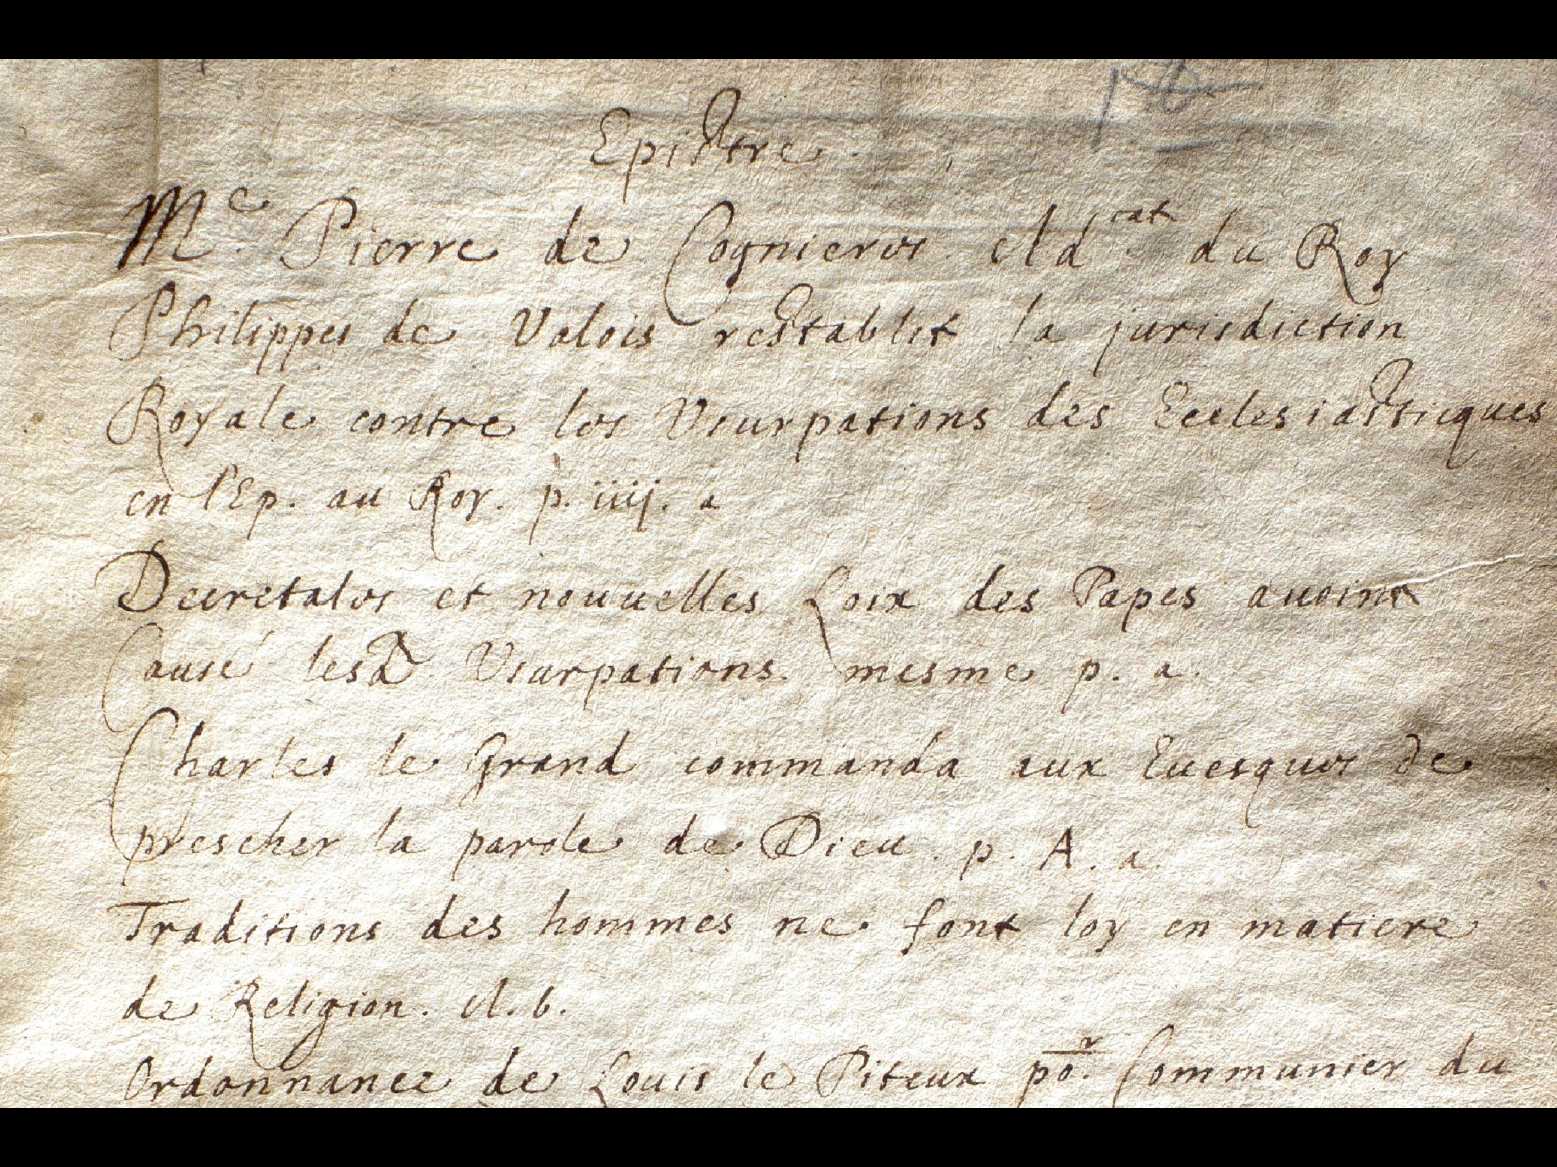 Epistre.
Me. Pierre de Cognieres. Adcat. du Roy
Philippes de Valois restablit la jurisdiction
Royale contre les Vsurpations des Ecclesiasticques
en l'Ep. au Roy. p. iiij. a
Decretales et nouuelles Loix des Papes auoint
Causé lesd. Vsurpations. mesme p. a.
Charles le Grand commanda aux Euesques de
prescher la parole de Dieu. p. A. a.
Traditions des hommes ne font loy en matiere
de Religion. A. b.
Ordonnance de Louis le Piteux por. Communier du